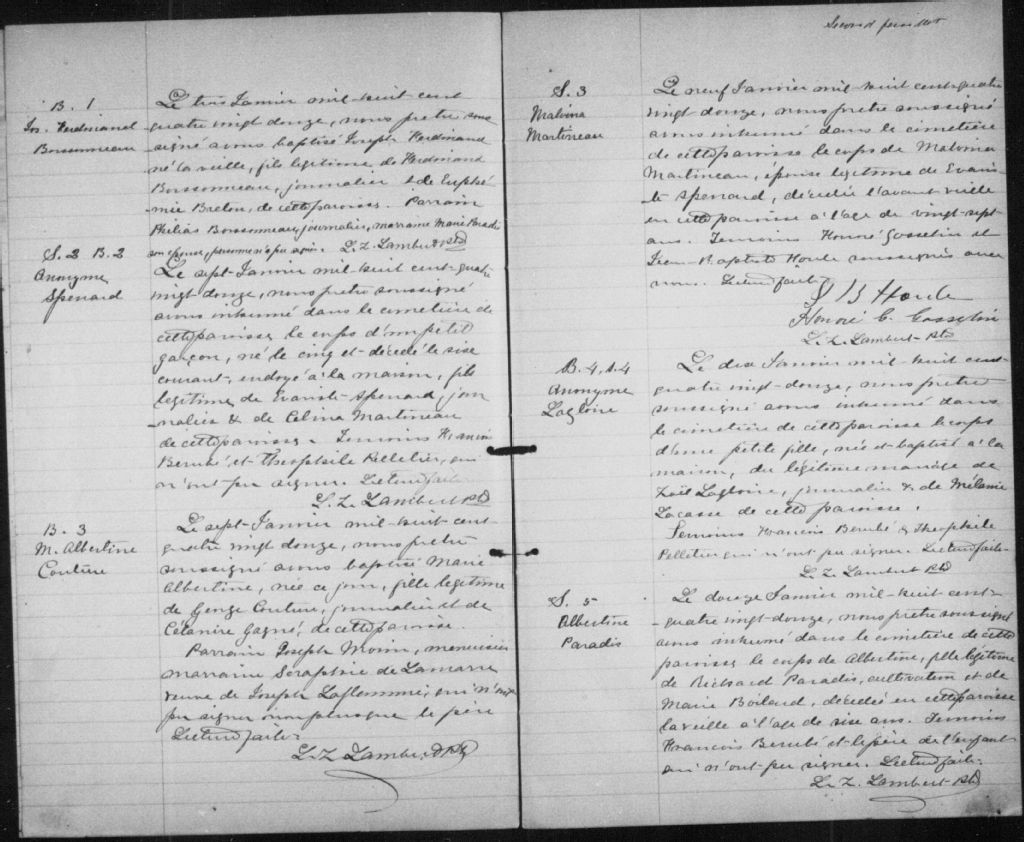 Second feuillet
B. 1
Jos. Ferdinand
Boissonneau
Le trois Janvier mil-huit cent
quatre vingt douze, nous prêtre sous
signé avons baptisé Joseph Ferdinand
né la veille, fils légitime de Ferdinand
Boissonneau, journalier & de Euphé
mie Breton, de cette paroisse. Parrain
Philias Boissonneau, journalier, marraine Marie Paradis
son épouse, L. Z. Lambert Ptre
S. 2 B. 2
Anonyme
Spenard
Le sept Janvier mil-huit cent-quatre
vingt douze, nous prêtre soussigné
avons inhumé dans le cimetière de
cette paroisse le corps d'un petit
garçon, né le cinq et décédé le sise
courant, ondoyé à la maison, fils
légitime de Evariste Spenard, jour
nalier & de Celina Martineau
de cette paroisse. Temoins Francois
Berubé et Theophile Pelletier, qui
n'ont pu signer. Lecture faite
L. Z. Lambert Ptre
B. 3
M. Albertine
Couture
Le sept Janvier mil-huit cent-
quatre vingt douze, nous prêtre
soussigné avons baptisé Marie
Albertine, née ce jour, fille légitime
de George Couture, journalier et de
Célanire Gagné, de cette paroisse.
Parrain Joseph Morin, menuisier
marraine Séraphine de Lamarre
veuve de Joseph Laflamme, qui n'ont
pu signer non plus que le père
Lecture faite
L. Z. Lambert Ptre
S. 3
Malvina
Martineau
Le neuf Janvier mil-huit cent-quatre
vingt douze, nous prêtre soussigné
avons inhumé dans le cimetière
de cette paroisse le corps de Malvina
Martineau, épouse légitime de Evaris
te Spenard, décédée l'avant veille
en cette paroisse à l'age de vingt-sept
ans. Temoins Honoré Gosselin et
Jean-Baptiste Houle soussignés avec
nous. Lecture faite
J B Houle
Honoré C. Gosselin
L. Z. Lambert Ptre
B. 4, S. 4
Anonyme
Lagloire
Le dix Janvier mil-huit cent-
quatre vingt-douze, nous prêtre
soussigné avons inhumé dans
le cimetière de cette paroisse le corps
d'une petite fille, née et baptisé à la
maison, du légitime mariage de
Zoël Lagloire, journalier & de Mélanie
Lacasse de cette paroisse.
Temoins Francois Berubé & Theophile
Pelletier qui n'ont pu signer. Lecture faite
L. Z. Lambert Ptre
S. 5
Albertine
Paradis
Le douze Janvier mil-huit cent-
quatre vingt-douze, nous prêtre soussigné
avons inhumé dans le cimetière de cette
paroisse le corps de Albertine, fille légitime
de Richard Paradis, cultivateur et de
Marie Boileud, décédée en cette paroisse
la veille à l'age de sise ans. Temoins
Francois Berubé et le père de l'enfant
qui n'ont pu signer. Lecture faite
L. Z. Lambert Ptre